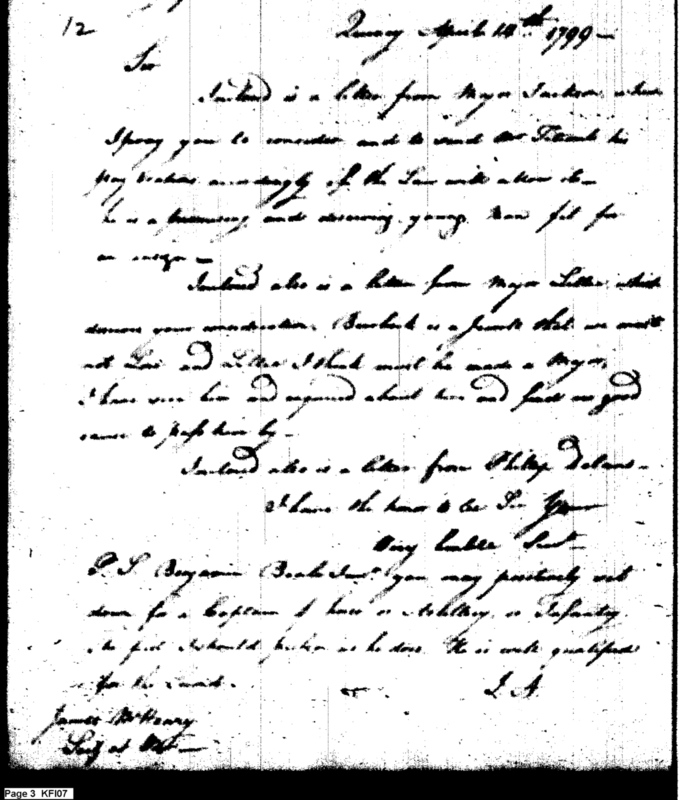 12
Quincy April 14th 1799—
Sir
Inclosed is a letter from Major Jackson which
I pray you to consider and to send Mr his
pay rations accordingly if the Law will allow it—
he is a promising and deserving young Man fit for
an ensign—
Inclosed also is a letter from Major Lillie which
deserves your consideration. Burbeck is a Jewell that we must
not Lose and Lillie I think must be made a Major,
I have seen him and enquired about him and find no good
cause to pass him by—
Inclosed also is a letter from Phillip
I have the honor to be Sir Your
Very humble Servt
P.S. Benjamin Beale Junr. you may positively set
down for a Captain of horse or Artillery or Infantry
the first I should prefer as he does. He is well qualified
for the
J A
James McHenry
Secy at War—
Page 3 KFI07